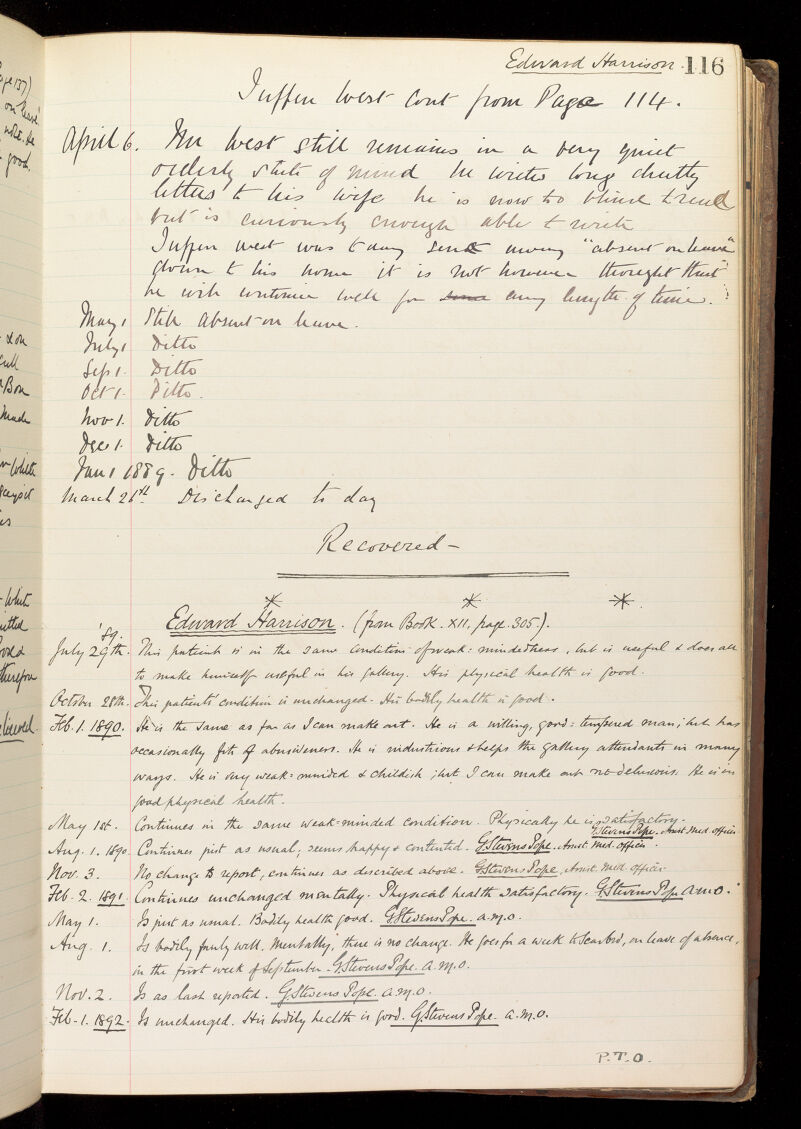 Edward Harrison. 116
Tuffen West Cont from Page 114.
April 6. Mr West still remains in a very quiet
orderly state of mind he writes long chatty
letters to his wife he is now too blind to read
but is curiously enough able to write
Tuffen West was today sent away "absent on leave"
down to his home it is not however thought that
he will continue well for some any length of time.
May 1 Still absent on leave.
July 1 Ditto
Sep 1. Ditto
Oct 1. Ditto.
Nov 1. Ditto
Dec 1. Ditto
Jan 1 1889. Ditto
March 21st. Discharged to day
Recovered —
Edward Harrison. (from Book. XII, page. 305).
'89.
July 29th. This patient is in the same condition of weak=mindedness, but is useful & does all
to make himself useful in his gallery. His physical health is good.
October 28th. This patients' condition is unchanged. His bodily health is good.
Feb. 1. 1890. He is the same as far as I can make out. He is a willing, good=tempered man; but has
occasionally fits of abusiveness. He is industrious & helps the gallery attendants in many
ways. He is very weak=minded & childish; but I can make out no delusions. He is in
good physical health.
May 1st. Continues in the same weak=minded condition. Physically he is satisfactory.
G Stevens Pope. Assist med. officer
Aug. 1. 1890. Continues just as usual; seems happy & contented. G Stevens Pope. Assist. med. officer.
Nov. 3. No change to report, continues as described above. G Stevens Pope, Assist. med. officer
Feb. 2. 1891. Continues unchanged mentally. Physical health satisfactory. G Stevens Pope A.M.O.
May 1. Is just as usual. Bodily health good. G Stevens Pope. A.M.O.
Aug. 1. Is bodily fairly well. Mentally, there is no change. He goes for a week to Scarboro', on leave of absence,
in the first week of September. G Stevens Pope. A.M.O.
Nov. 2. Is as last reported. G Stevens Pope. A.M.O.
Feb. 1. 1892. Is unchanged. His bodily health is good. G Stevens Pope. A.M.O.
P.T.O.